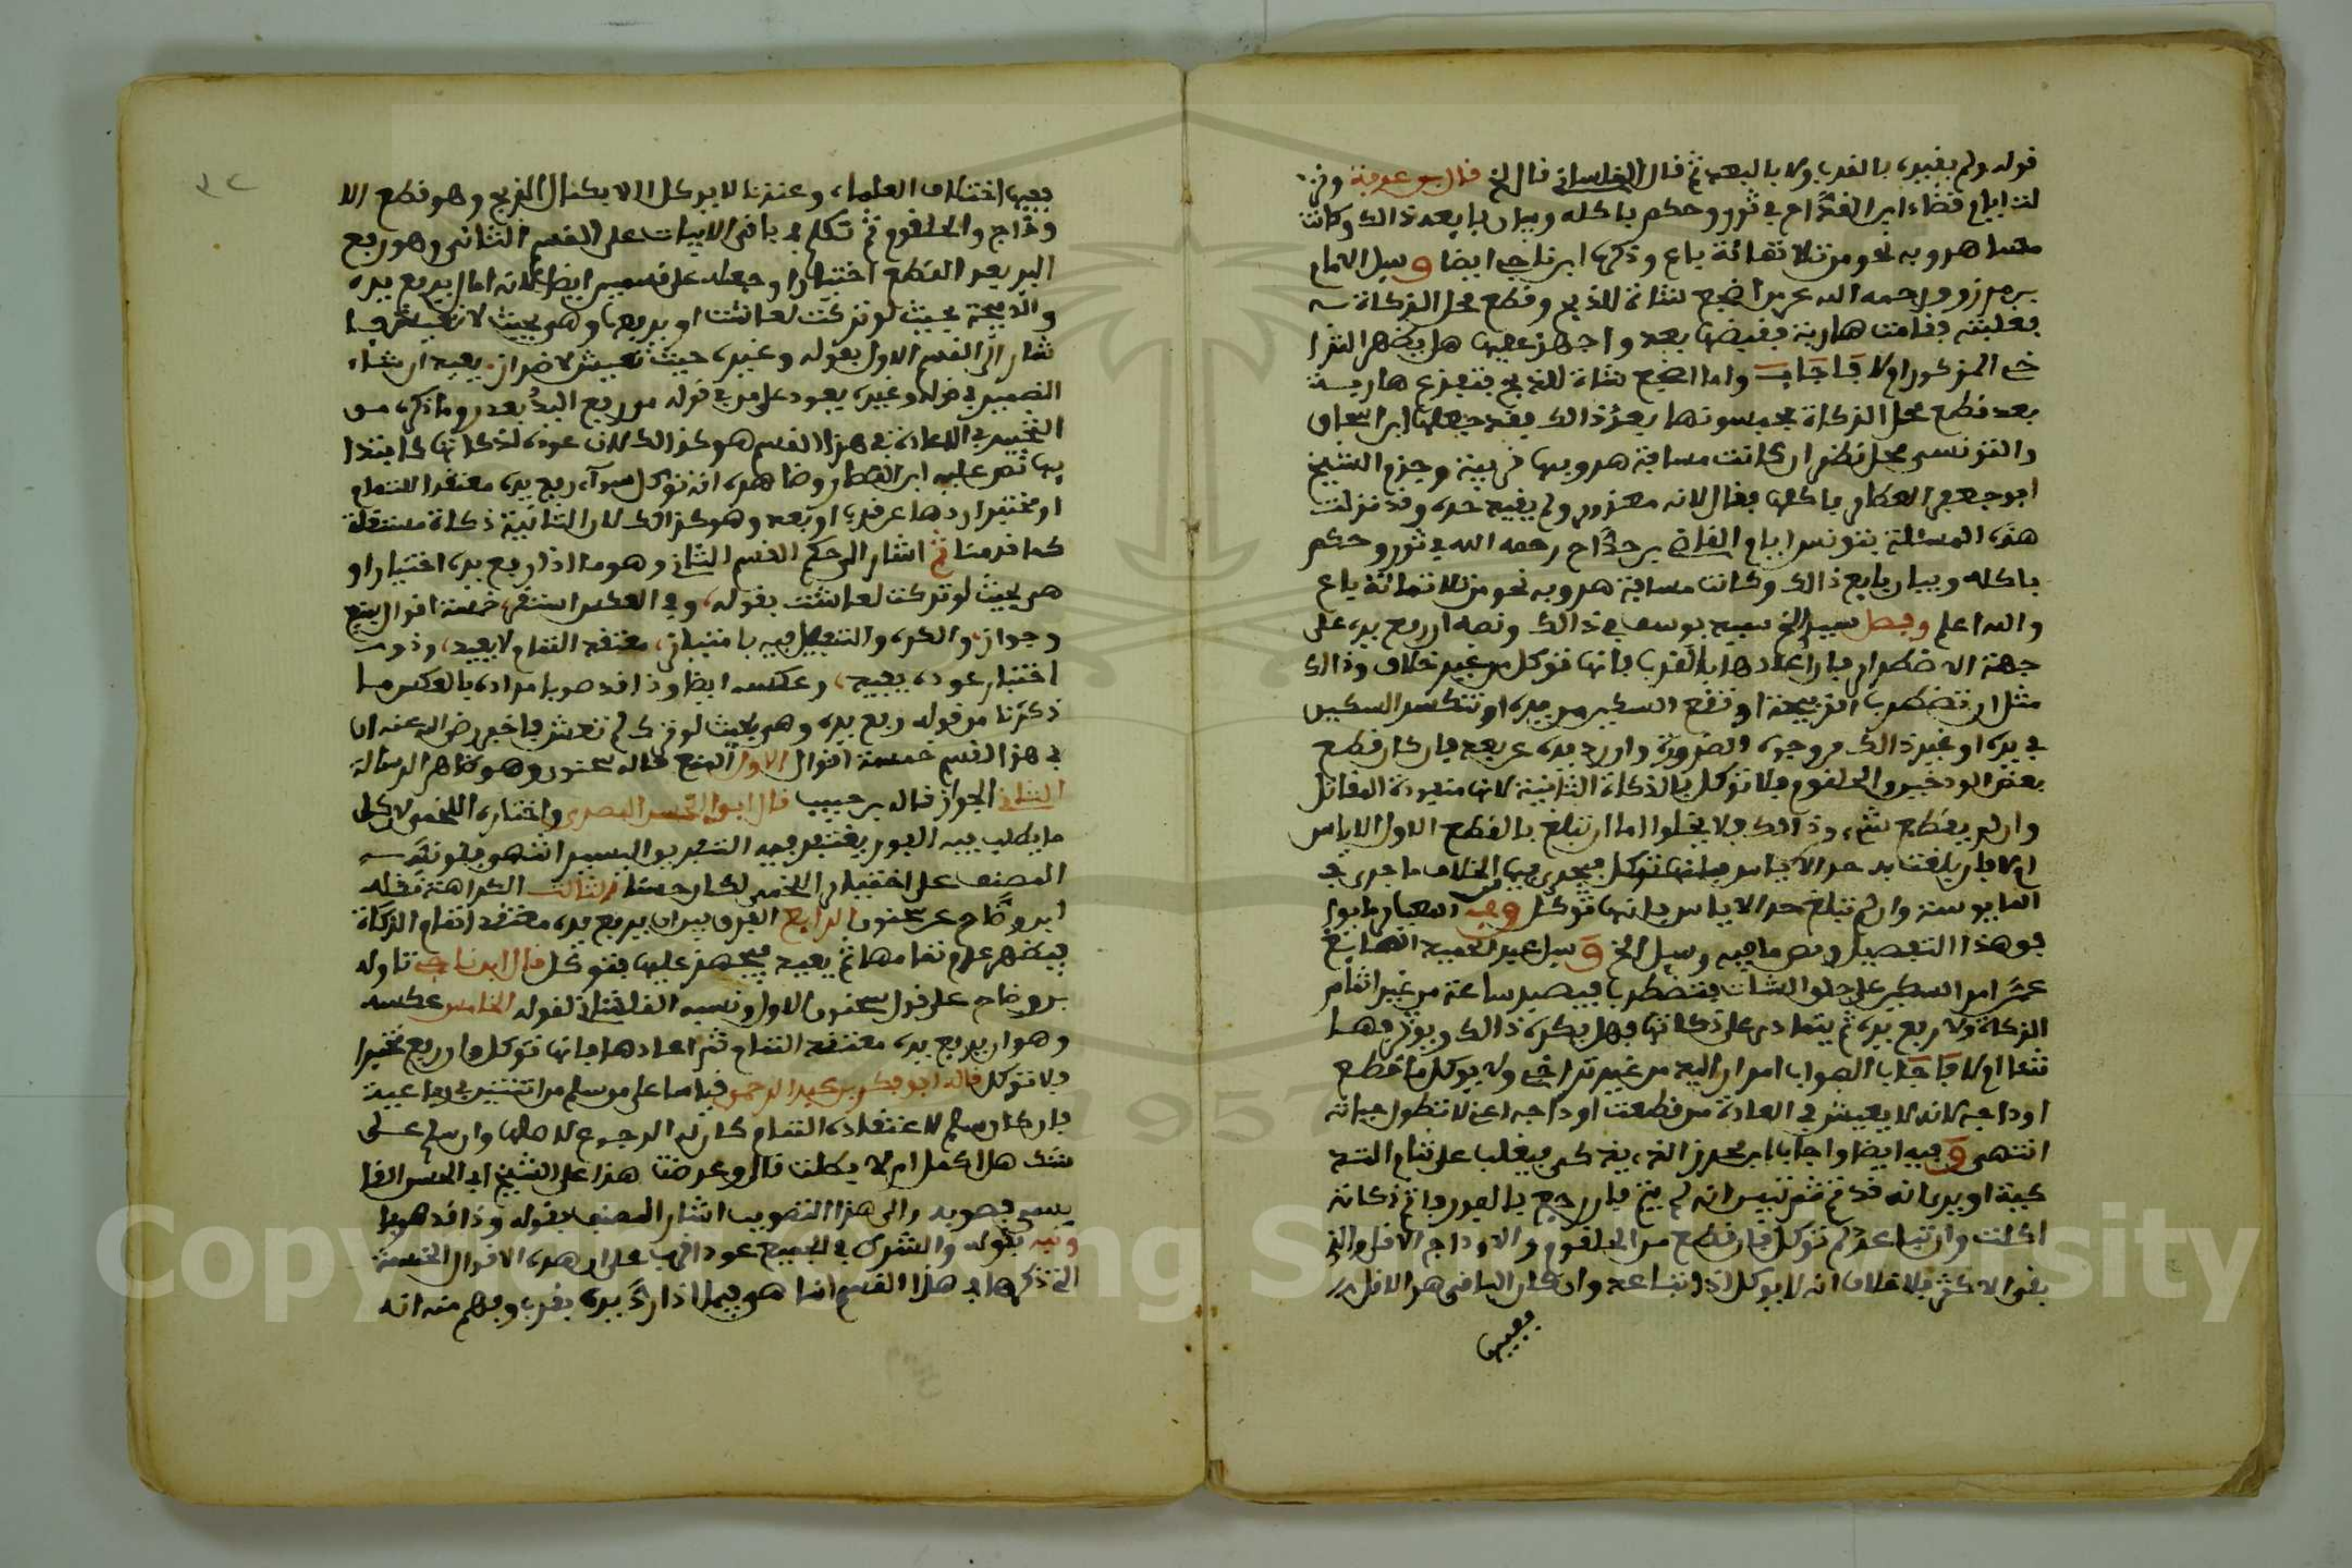 قوله ولم يقيده بالقرب ولا بالبعد ثم قال قال الخ قال بن عرفة
لت ايام قضاء ابن القداح في ثور وحكم باكله وبيان بايعه ذالك وكانت
مسا هروبه نحو من ثلاثمائة باع وذكرها ابن ناجي ايضا وسيل الامام
بن مرزوق رحمه الله عمن اضجع لشاة للذبح وقطع محل الذكاة
فغلبته فقامت هاربة فقبضها بعد واجهز عليها هل يظهر الشرا
خي المذكور ام لا فاجاب واما اضجع شاة للذبح فتفزع هاربة
بعد قطع محل الذكاة فقد جعلها ابن اسحاق
والتونسي محل نظر ان كانت مسافة هروبها قريبة وجزم الشيخ
ابو جعفر العطار باكلها فقال لانه معذور ولم يقيد حده وقد نزلت
هذه المسئلة بتونس ايام القاضي بن حداح رحمه الله في ثور وحكم
باكله وبيان بايع ذالك وكانت مسافة هروبه نحو من ثلاثمائة باع
والله اعلم وفصل سيدي يوسف في ذالك ونصه ان رفع يده على
جهة الاضطرار فان اعادها بالقرب فانها توكل من غير خلاف وذالك
مثل ان تضطرب الذبيحة او تقع السكين من يده او تنكسر السكين
في يده او غير ذالك من وجوه الضرورة وان رد يده عن بعد فان كان قطع
بعض الودجين والحلقوم فلا توكل بالذكاة الثانية لانها منفوذة المقاتل
وان لم يقطع شيء وذالك فلا يخلوا اما ان تبلغ بالقطع الاول الاياس
ام لا فان بلغت به حد الاياس فيجري فيها الخلاف ما جرى في
المايوسة وان لم تبلغ حد الاياس فانها توكل وفي المعيار
هو هذا التفصيل ونص ما فيه وسيل الخ وسيل عبد الحميد الصايغ
عمن امر السكين على حلق الشات فتضطرب فيصير ساعة من غير اتمام
الذكاة ولا رفع يده ثم يتمادى على ذكاتها فهل يكره ذالك ويوثر فيها
شيئا ام لا فاجاب الصواب امرار اليد من غير تراخي ولا يوكل ما قطع
اوداجه لانه لا يعيش في العادة من قطعت اوداجه اعني لا تطول حياته
انتهى وفيه ايضا واجاب ابن محرز الذي يذكي فيغلب على شاة
او يرى انه قد تم ثم تبين انه لم يتم فان رجع بالفور فاتم ذكاته
اكلت وان تباعد لم توكل فان قطع من الحلقوم والاوداج الاقل والذي
بقي الاكثر فلا خلاف انه لا يوكل اذا تباعد وان كان الباقي هو الاقل
ففيها
ففيها اختلاف العلماء وعندنا لا يوكل الا بكمال الذبح وهو قطع الا
وداج والحلقوم ثم تكلم في باقي الابيات على القسم الثاني وهو رفع
اليد بعد القطع اختيارا وجعله على قسمين ايضا لانه اما ان يرفع يده
والذبيحة بحيث لو تركت لعاشت او يرفعها وهو بحيث لا تعيش فا
شار الى القسم الاول بقوله وغيره حيث تعيش لا ضرار يعيد ان شاء
الضمير في قوله وغيره يعود على من في قوله من رفع اليد بعد وما ذكره من
التخيير في الاعادة في هذا القسم هو كذالك لان عوده لذكاتها كابتدا
يها نص عليه ابن القصار وظاهره انه توكل سواء رفع يده معتقدا للتمام
او مختبرا ردها عن قرب او بعد وهو كذالك لان الثانية ذكاة مستقلة
كما قدمنا ثم اشار الى حكم القسم الثاني وهو ما اذا رفع يده اختيارا و
هي بحيث لو تركت لعاشت بقوله وفي العكس استقر خمسة اقوال بمنع
وجواز والكره والتفصيل فيه بامتياز معتقد التمام لا يعيد وذو
اختبار عوده يفيد وعكسه ايضا وذا قد صوبا مراده بالعكس ما
ذكرنا من قوله رفع يده وهي بحيث لو ترك لم تعش فاخبر رضي الله عنه ان
في هذا القسم خمسة اقوال الاول المنع قاله سحنون وهو ظاهر الرسالة
الثاني الجواز قاله بن حبيب قال ابو الحسن البصري واختاره اللخمي لان كل
ما يطلب فيه الفور يغتفر فيه التفريق اليسير انتهى
المصنف على اختيار اللخمي لكان حسنا الثالث الكراهة نقله
ابن وضاح عن سحنون الرابع الفرق بين ان يرفع يده معتقدا تمام الذكاة
فيظهر عدم تمامها ثم يعيد فيجهز عليها فتوكل قال ابن ناجي تاوله
بن وضاح على قول سحنون الاول ونسبه القابسي لقوله الخامس عكسه
وهو ان يرفع يده معتقد التمام ثم اعادها فانها توكل وان رفع مختبرا
فلا توكل قاله ابو بكر بن عبد الرحمن قياسا على من سلم من اثنتين في رباعية
فان كان سلم لاعتقاده التمام كان له الرجوع لاصلاحها وان سلم على
شك هل اكمل ام لا بطلت قال وعرضت هذا على الشيخ ابي الحسن القا
بسي فصوبه والى هذا التصويب اشار المصنف بقوله وذا قد صوبا
ونبه بقوله والشرط في الجميع عود اقرب على ان هذه الاقوال الخمسة
التي ذكرها في هذا القسم انما هو فيما اذا رد يده بقرب وفهم منه انه